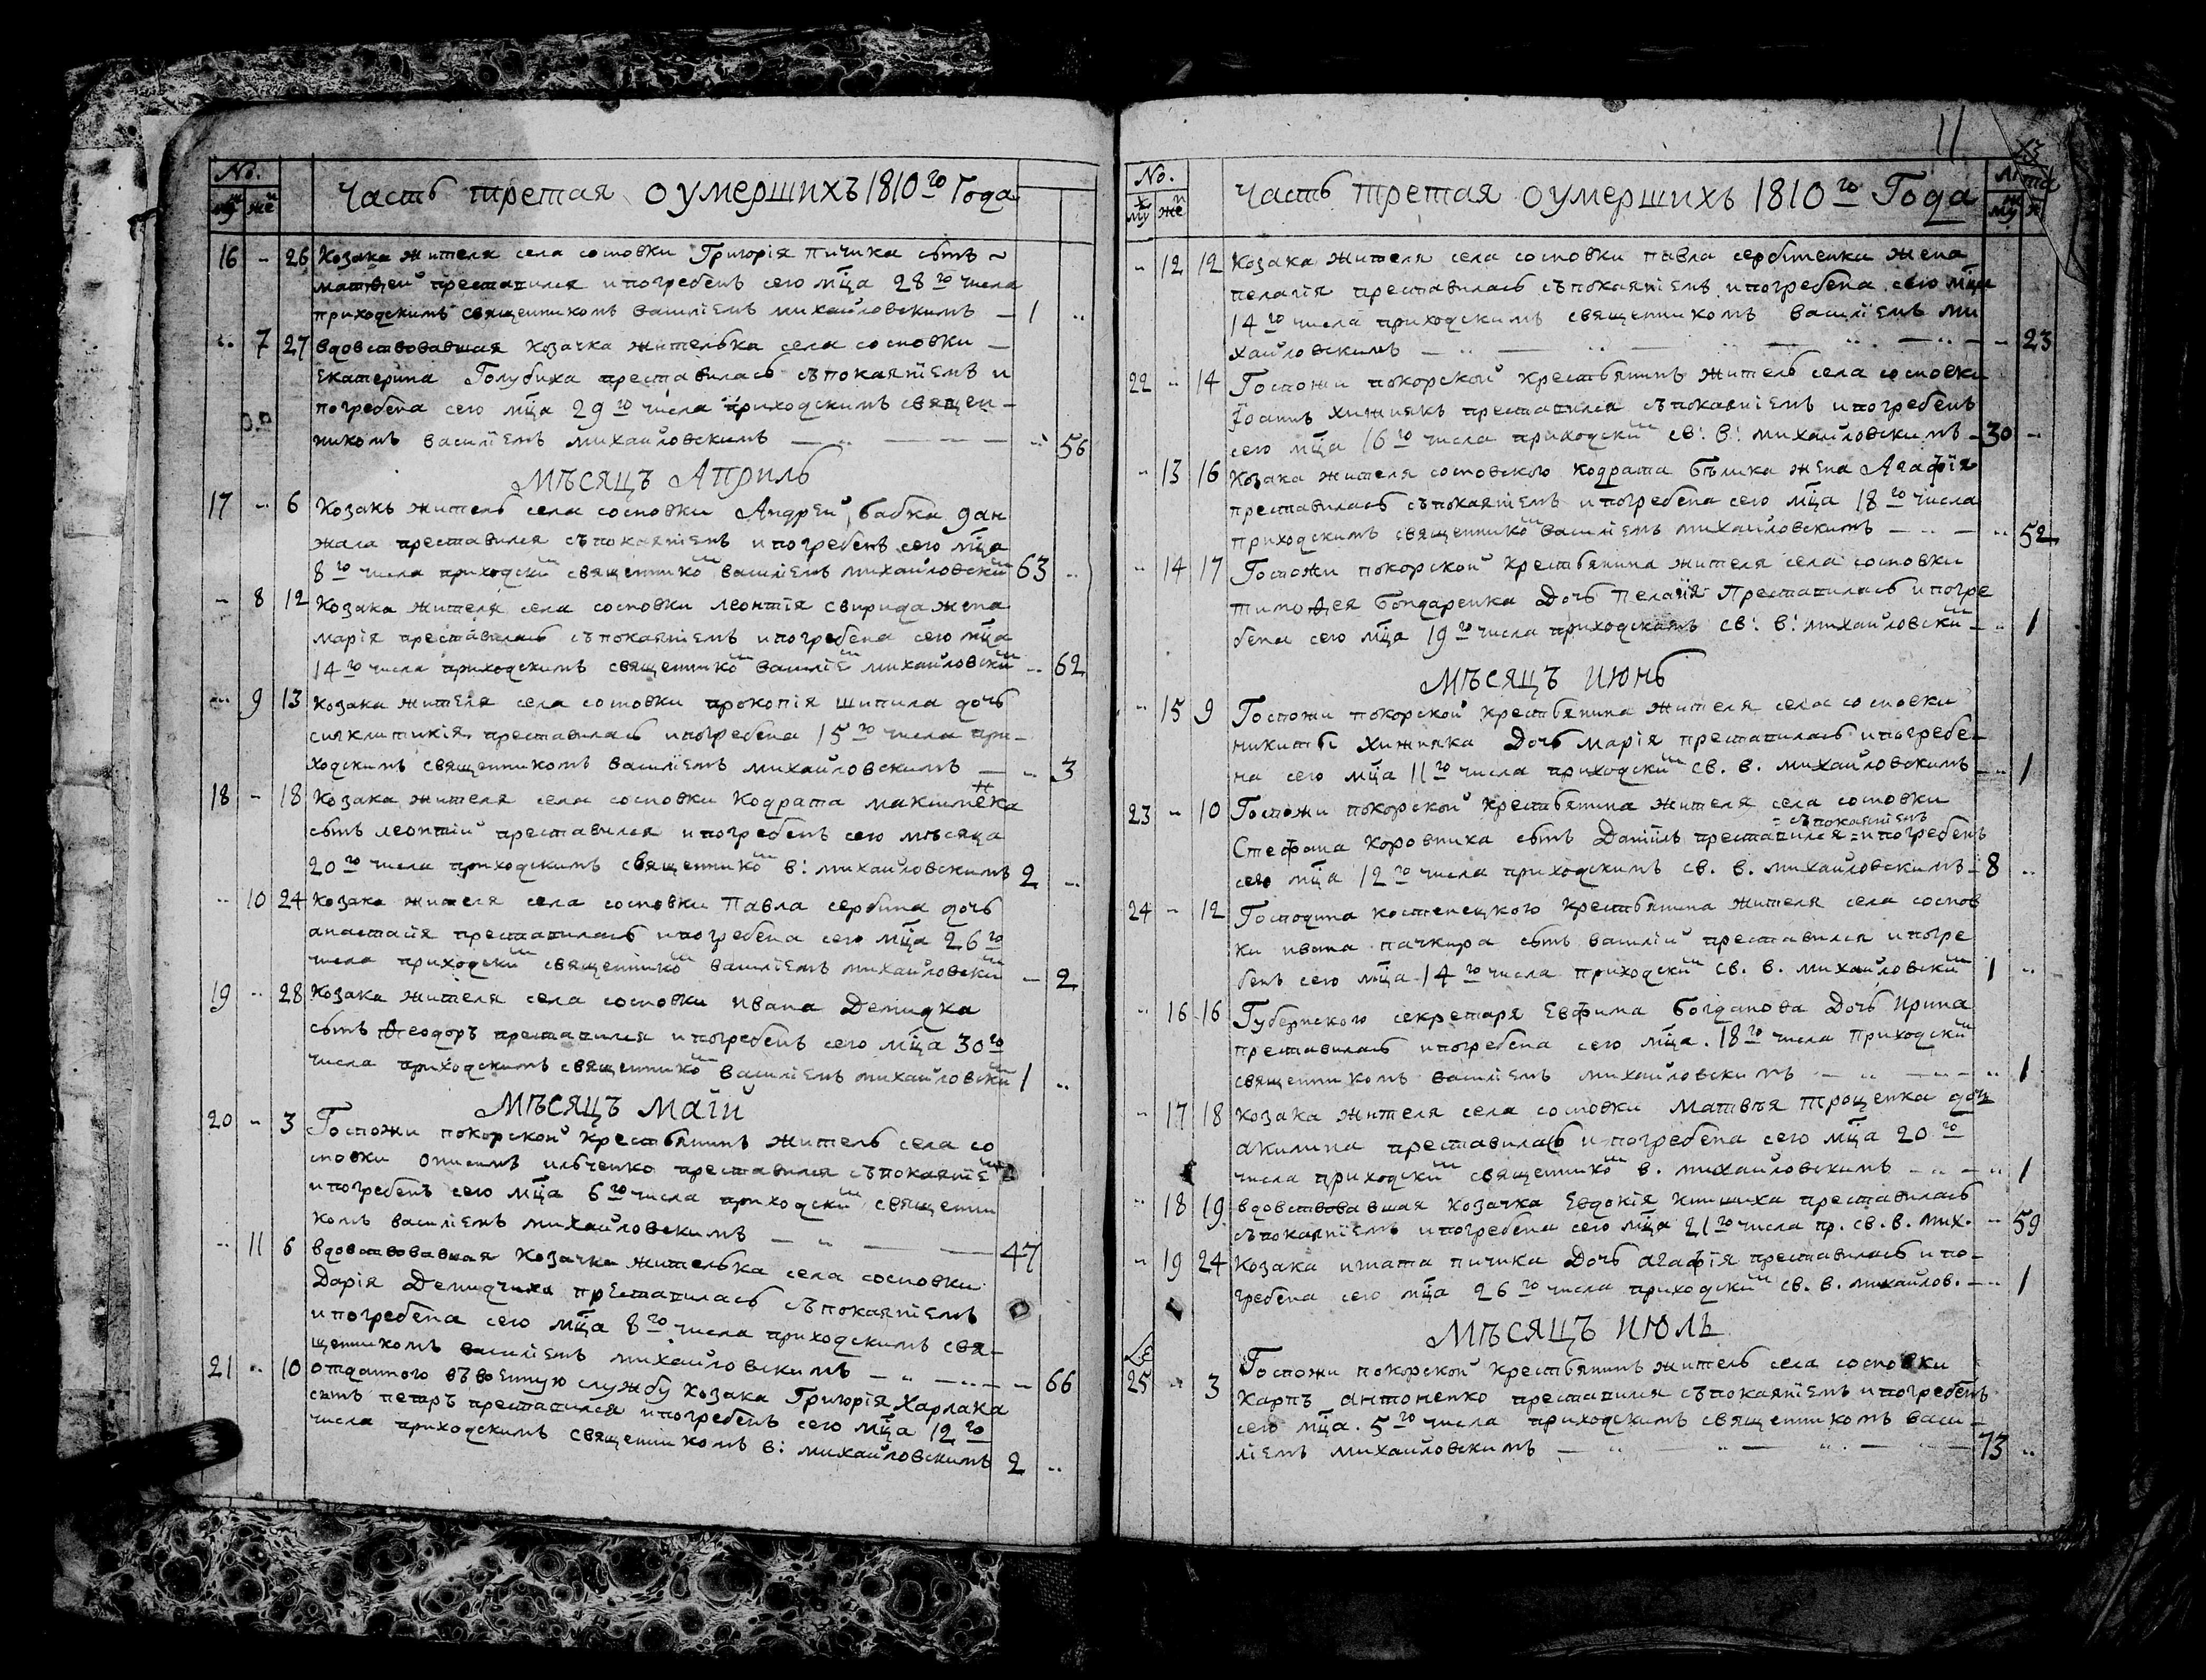 No.
му же
часть третая о умершихъ 1810го Года
16 - 26 Козака жителя села сосновки Григорія Пичика сынъ ~
матѳей преставился и погребенъ сего мца 28го числа
приходскимъ священникомъ василіемъ михайловскимъ — 1 ..
.. 7 27 вдовствовавшая козачка жителька села сосновки —
Екатерина Голубиха преставилась съ покаяніемъ и
погребена сего мца 29го числа приходскимъ священ-
никомъ василіемъ михайловскимъ — .. — — — .. 56
мѣсяцъ Априль
17 .. 6 Козакъ житель села сосновки Андрей бабка дан
жала преставился съ покаяніемъ и погребенъ сего мца
8го числа приходским священником василіемъ михайловским 63 ..
- 8 12 Козака жителя села сосновки леонтія свирида жена
марія преставилась съ покаяніемъ и погребена сего мца
14го числа приходскимъ священником василіем михайловским .. 62
.. 9 13 козака жителя села сосновки прокопія шипила дочь
сигклитикія преставилась и погребена 15го числа при-
ходскимъ священникомъ василіемъ михайловскимъ — .. 3
18 - 18 Козака жителя села сосновки Кодрата максименка
сынъ леонтій преставился и погребенъ сего мѣсяца
20го числа приходскимъ священником в: михайловскимъ 2 ..
.. 10 24 Козака жителя села сосновки Павла сербина дочь
анастасія преставилась и погребена сего мца 26го
числа приходским священником василіемъ михайловским — 2
19 .. 28 Козака жителя села сосновки ивана Демидка
сынъ ѳеодоръ преставился и погребенъ сего мца 30го
числа приходскимъ священником василіемъ михайловским 1 ..
мѣсяцъ маій
20 - 3 Госпожи покорской крестьянинъ житель села со
сновки онисимъ ильченко преставился съ покаяніем
и погребенъ сего мца 6го числа приходским священни
комъ василіемъ михайловскимъ — .. — — 47
.. 11 6 вдовствовавшая козачка жителька села сосновки
Дарія Демидчиха преставилась съ покаяніемъ
и погребена сего мца 8го числа приходскимъ свя-
щенникомъ василіемъ михайловскимъ — .. — .. — 66
21 .. 10 отданного въ военную службу козака Григорія Харлана
сынъ петръ преставился и погребенъ сего мца 12го
числа приходскимъ священникомъ в: михайловскимъ 2 ..
11
No. лѣта
му же му ж
часть третая о умершихъ 1810го Года
- 12 12 Козака жителя села сосновки павла сербіненка жена
пелагія преставилась съ покаяніемъ и погребена сего мца
14го числа приходскимъ священникомъ василіемъ ми
хайловскимъ — .. — .. — .. — .. — .. 23
22 .. 14 Госпожи покорской крестьянинъ житель села сосновки
Іоаннъ хижнякъ преставился съ покаяніемъ и погребенъ
сего мца 16го числа приходским св: в: михайловскимъ - 30 ..
- 13 16 Козака жителя сосновского кодрата бѣлика жена Агафія
преставилась съ покаяніемъ и погребена сего мца 18го числа
приходскимъ священником василіемъ михайловскимъ — .. — .. 52
.. 14 17 Госпожи покорской крестьянина жителя села сосновки
тимоѳея бондаренка Дочь пелагія Преставилась и погре
бена сего мца 19го числа приходскимъ св: в: михайловским — .. 1
мѣсяцъ июнь
.. 15 9 Госпожи покорской крестьянина жителя села сосновки
никиты хижняка Дочь марія преставилась и погребе-
на сего мца 11го числа приходским св. в. михайловскимъ — .. 1
23 - 10 Госпожи покорской крестьянина жителя села сосновки
= съ покаяніемъ
Стефана коровника сынъ Даніилъ преставился = и погребенъ
сего мца 12го числа приходскимъ св. в. михайловскимъ - 8 ..
24 - 12 Господина костенецкого крестьянина жителя села соснов
ки ивана пачкура сынъ василій преставился и погре
бенъ сего мца 14го числа приходским св. в. михайловским 1 ..
.. 16 16 Губернского секретаря Евфима богданова Дочь Ирина
преставилась и погребена сего мца. 18го числа Приходским
священникомъ василіемъ михайловскимъ — .. — .. — .. 1
.. 17 18 Козака жителя села сосновки матвѣя трощенка дочь
акилина преставилась и погребена сего мца 20го
числа приходским священником в. михайловскимъ — .. — .. 1
.. 18 19 вдовствовавшая козачка Евдокія преставилась
съ покаяніемъ и погребена сего мца 21го числа пр. св. в. мих. .. 59
.. 19 24 Козака игната пичика Дочь агафія преставилась и по-
гребена сего мца 26го числа приходским св. в. михайлов. — .. 1
мѣсяцъ июль
25 .. 3 Госпожи покорской крестьянинъ житель села сосновки
Карпъ антоненко преставился съ покаяніемъ и погребенъ
сего мца. 5го числа приходскимъ священникомъ васи-
ліемъ михайловскимъ — .. — .. — .. — .. — 73 ..